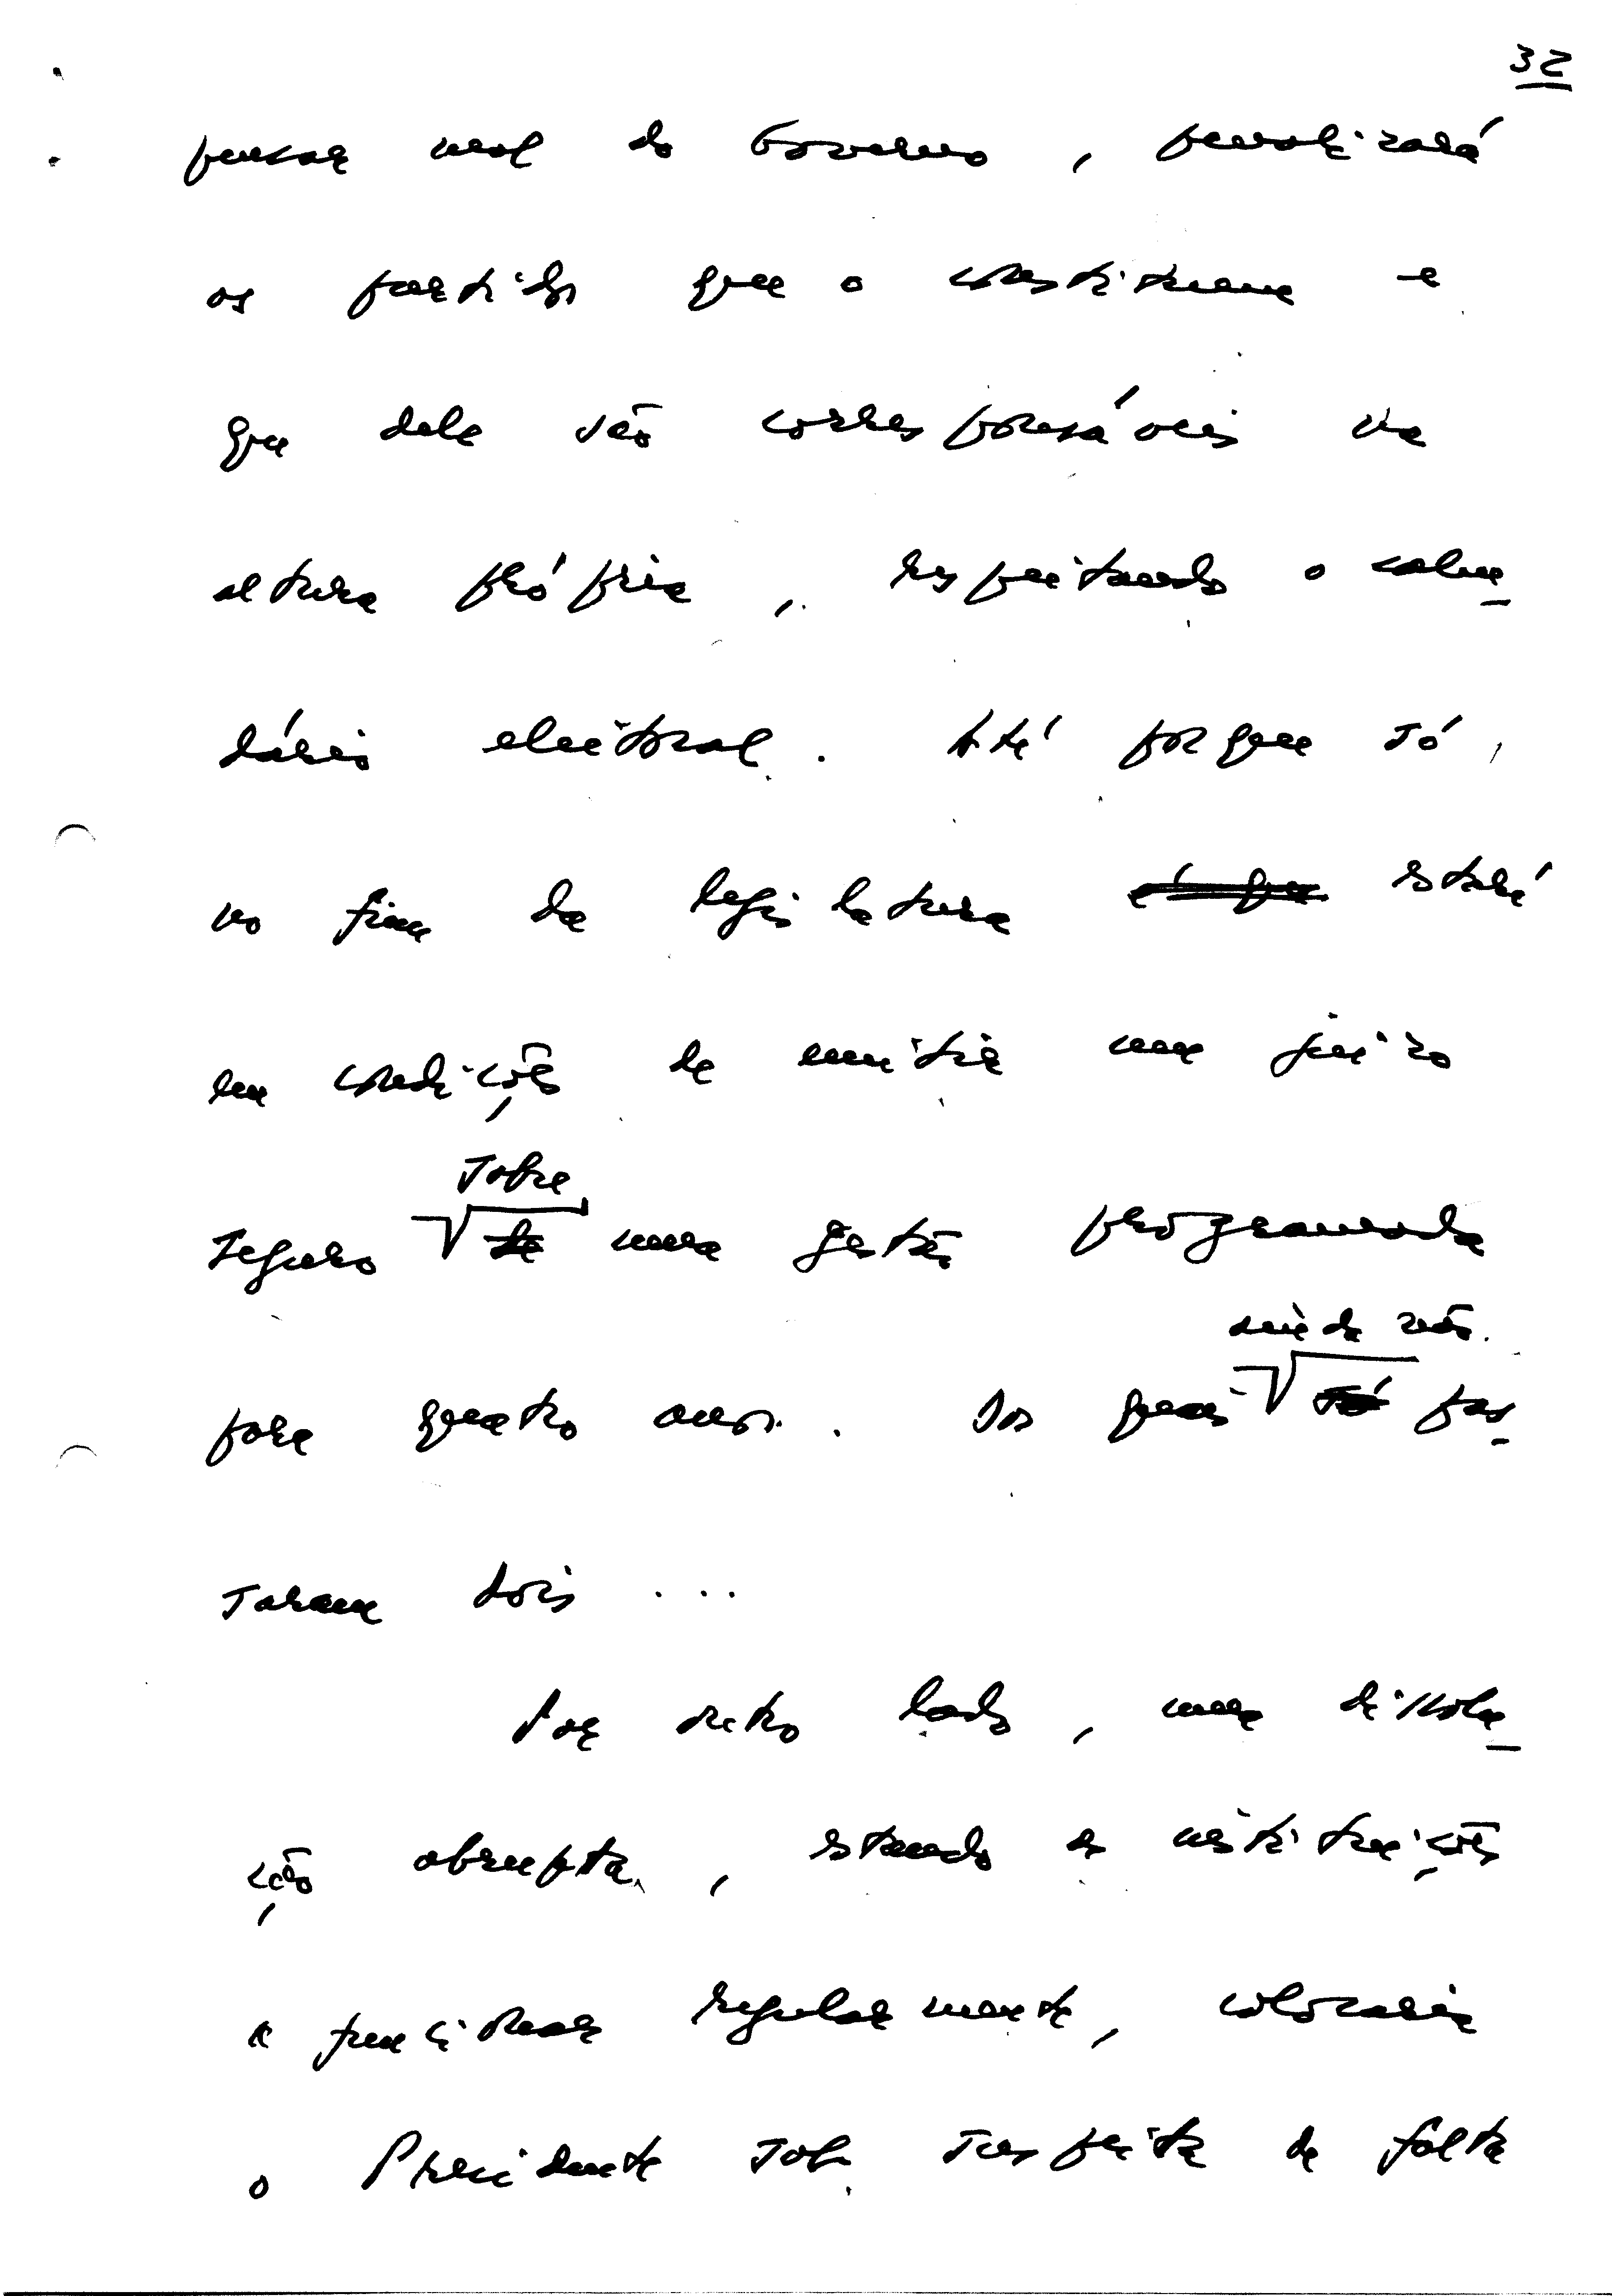 32
pensar mal do Governo, penalizará
os partidos que o constituem e
que dele são corresponsáveis na
altura própria, respeitando o calen-
dário eleitoral. Até porque só,
no fim da legislatura é que estará
em condições de emitir um juízo
sobre
seguro de uma gestão programada
ainda não
para quatro anos. Dos quais só pas-
saram dois ...
Por outro lado, uma dissolu-
ção abrupta, estando as instituições
a funcionar regularmente, colocaria
o Presidente sob suspeita de falta